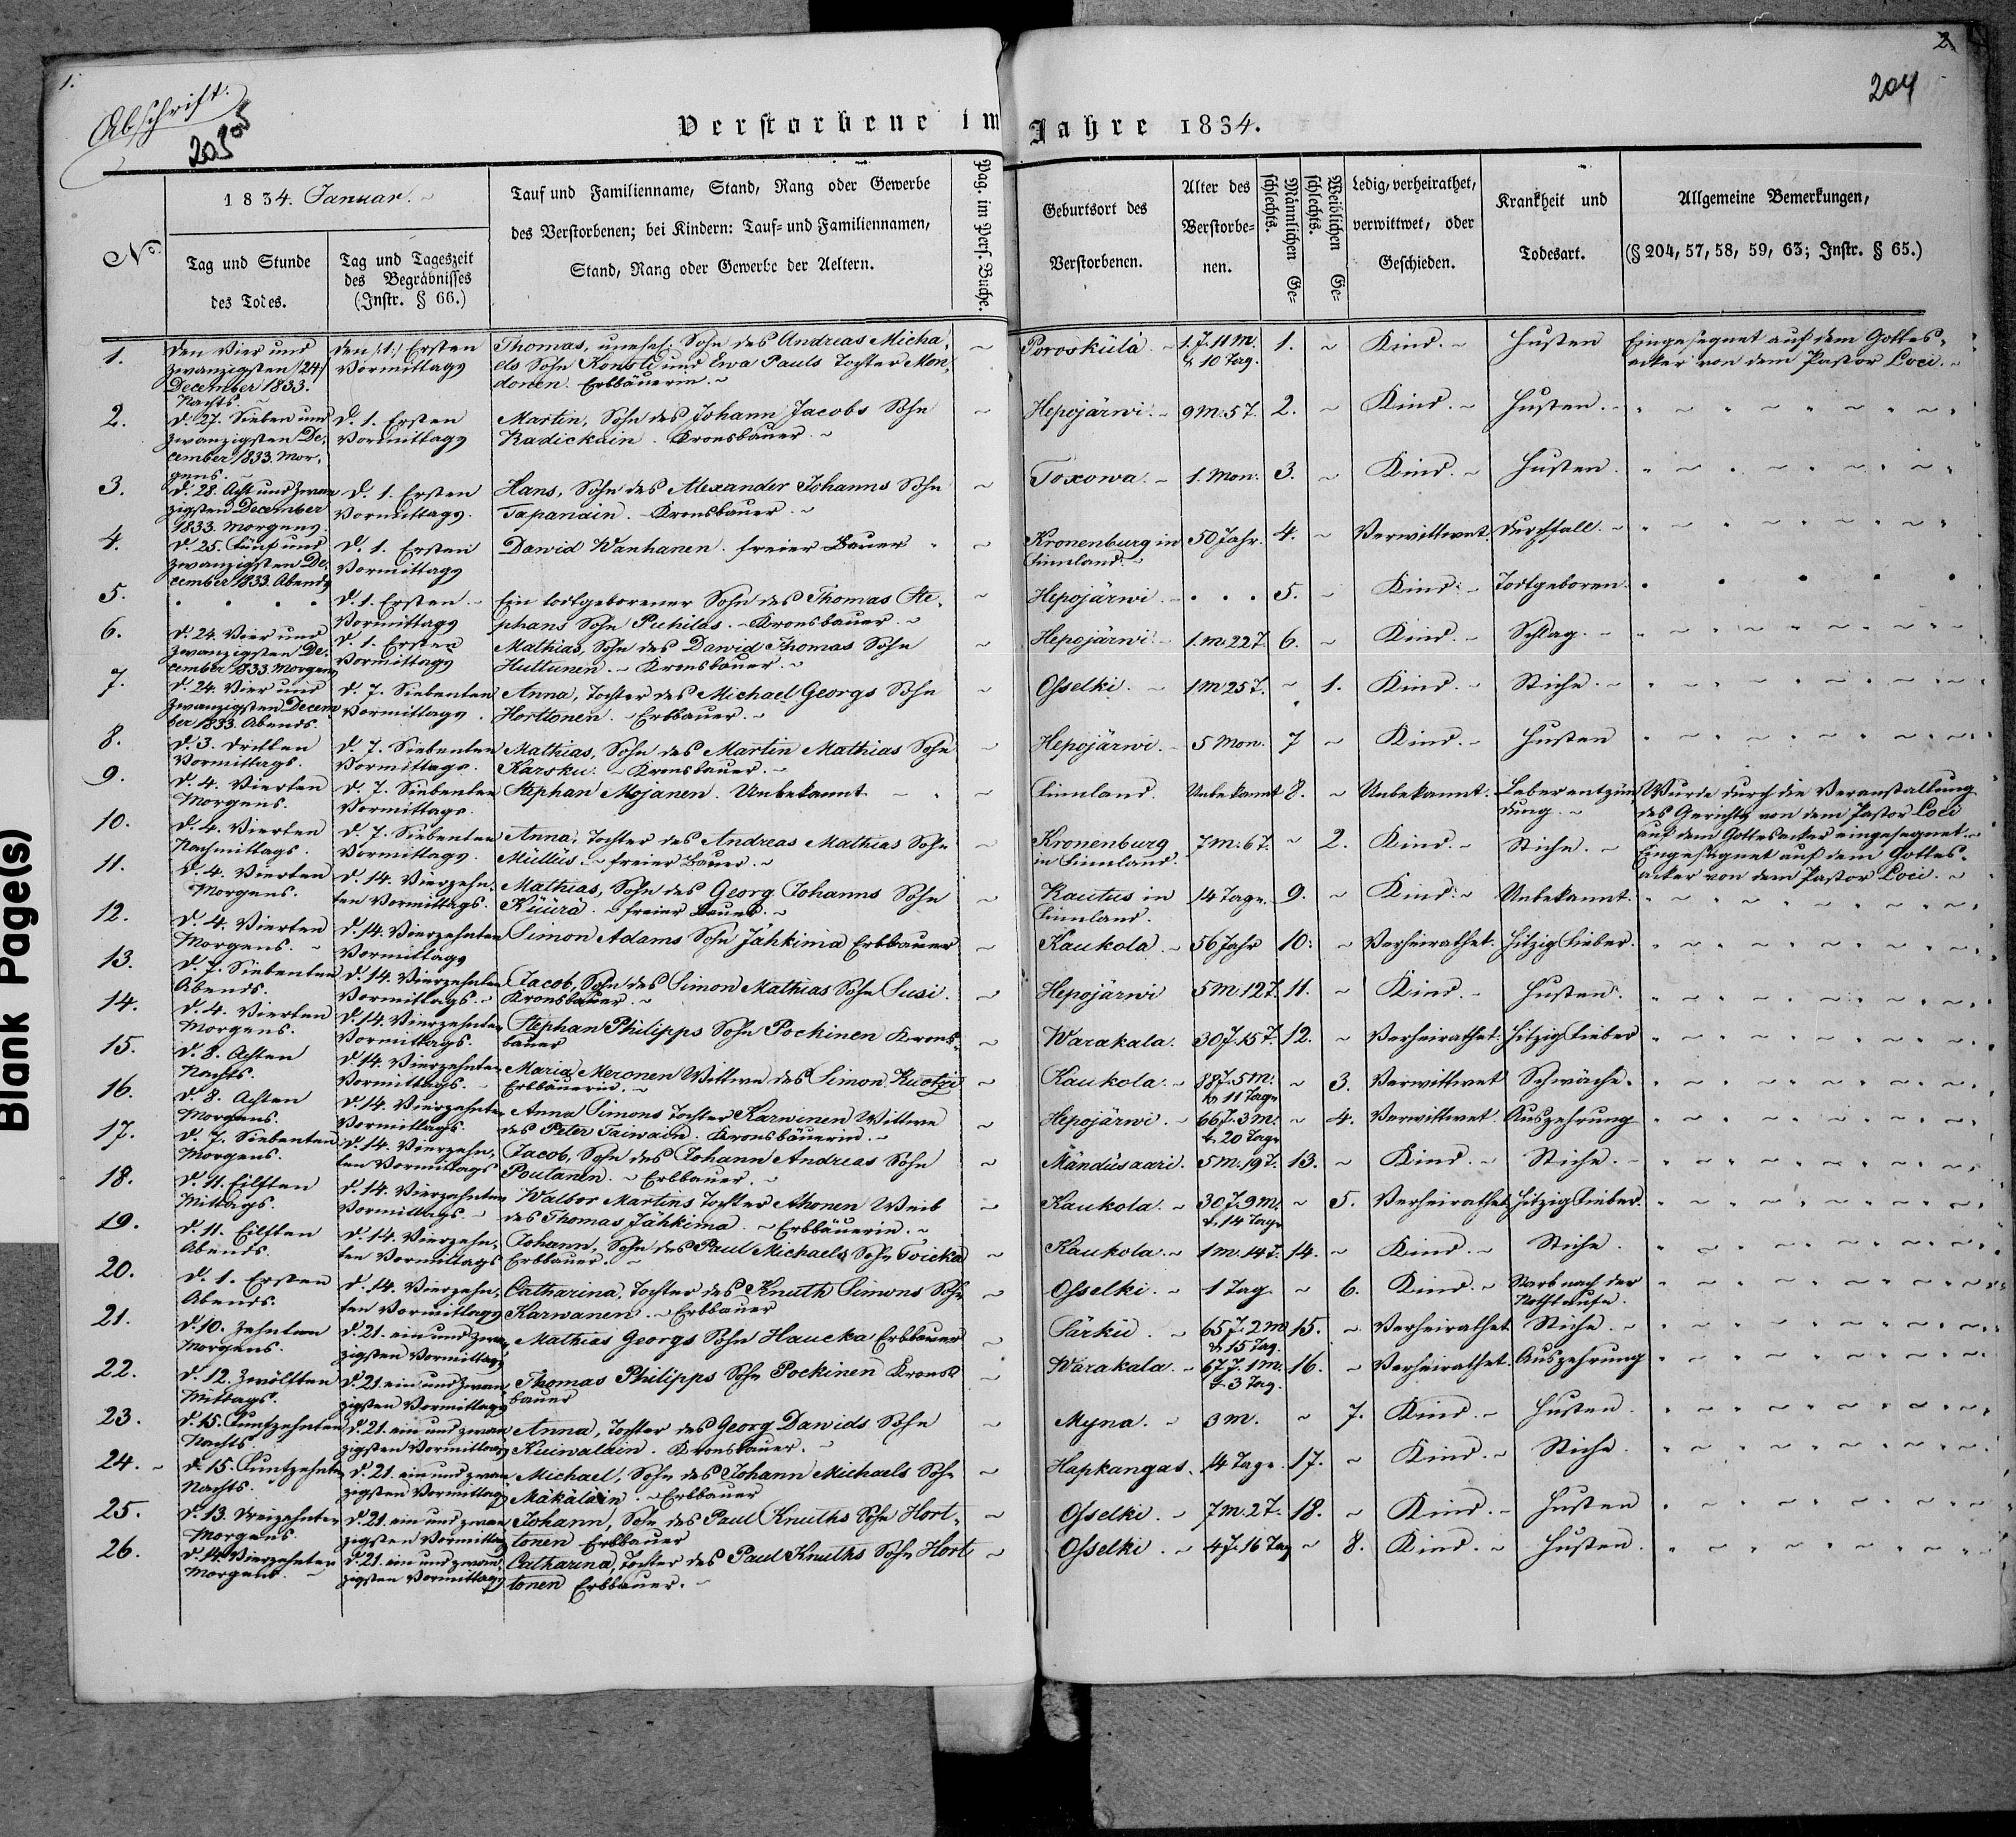 1.
Abschrift.
203
2
204
Verstorbene im Jahre 1834.
No.
1834. Januar.
Tag und Stunde
des Todes.
Tag und Tageszeit
des Begräbnisses
(Instr. § 66.)
Tauf und Familienname, Stand, Rang oder Gewerbe
des Verstorbenen; bei Kindern: Tauf- und Familiennamen,
Stand, Rang oder Gewerbe der Aeltern.
Pag. im Pers. Buche.
Geburtsort des
Verstorbenen.
Alter des
Verstorbe-
nen.
Männlichen Ge-
schlechts.
Weiblichen Ge-
schlechts.
Ledig, verheirathet,
verwittwet, oder
Geschieden.
Krankheit und
Todesart.
Allgemeine Bemerkungen,
(§ 204, 57, 58, 59, 63; Instr. § 65.)
1.
den Vier und
zwanzigsten /24/
December 1833.
Nachts.
den /:1:/ Ersten
Vormittags
Thomas, unehel. Sohn des Andreas Micha-
els Sohn und Ewa Pauls Tochter Mon-
donen. Erbbäuerin.
Poroskülä
1. J. 11 M.
& 10 Tag.
1.
Kind.
Husten
Eingesegnet auf dem Gottes-
acker von dem Pastor Loci.
2.
d. 27. Sieben und
zwanzigsten De-
cember 1833. Mor-
gens.
d. 1. Ersten
Vormittags
Martin, Sohn des Johann Jacobs Sohn
Radickain. Kronsbauer.
Hepojärwi.
9 M. 5 T.
2.
Kind.
Husten.
3.
d. 28. Acht und zwan
zigsten December
1833. Morgens.
d. 1. Ersten
Vormittags.
Hans, Sohn des Alexander Johanns Sohn
Tapanain. Kronsbauer.
Toxowa.
1. Mon.
3.
Kind.
Husten.
4.
d. 25. Fünf und
zwanzigsten De-
cember 1833. Abends
d. 1. Ersten
Vormittags
Dawid Wanhanen. freier Bauer
Kronenburg in
Finnland.
50 Jahr.
4.
Verwittwet.
Durchfall.
5.
d. 1. Ersten.
Vormittags
Ein todtgeborener Sohn des Thomas Ste-
phans Sohn Puhilas. Kronsbauer.
Hepojärwi.
5.
Kind.
Todtgeboren.
6.
d. 24. Vier und
zwanzigsten De-
cember 1833. Morgens
d. 1. Ersten
Vormittags
Mathias, Sohn des Dawid Thomas Sohn
Huttunen. Kronsbauer.
Hepojärwi.
1 M. 22 T.
6.
Kind.
Schlag.
7.
d. 24. Vier und
zwanzigsten Decem
ber 1833. Abends.
d. 7. Siebenten
Vormittags.
Anna, Tochter des Michael Georgs Sohn
Horttonen. Erbbauer.
Osselki.
1 M 25 T.
1.
Kind.
Stiche.
8.
d. 3. dritten
Vormittags.
d. 7. Siebenten
Vormittags.
Mathias, Sohn des Martin Mathias Sohn
Karsku. Kronsbauer.
Hepojärwi.
5 Mon.
7
Kind.
Husten
9.
d. 4. Vierten
Morgens.
d. 7. Siebenten
Vormittags.
Stephan Mojanen. Unbekannt.
Finnland.
Unbekannt
8.
Unbekannt.
Leberentzün
dung.
Wurde durch die Veranstaltung
des Gerichts von dem Pastor Loci
auf dem Gottesacker eingesegnet.
10.
d. 4. Vierten
Nachmittags.
d. 7. Siebenten
Vormittags.
Anna, Tochter des Andreas Mathias Sohn
Müllüs. freier Bauer.
Kronenburg
in Finnland.
7 M. 6 T.
2.
Kind.
Stiche.
Eingesegnet auf dem Gottes-
acker von dem Pastor Loci.
11.
d. 4. Vierten
Morgens.
d. 14. Vierzehn-
ten Vormittags.
Mathias, Sohn des Georg Johanns Sohn
Küürä. freier Bauer.
Kautus in
Finnland.
14 Tage.
9.
Kind.
Unbekannt.
12.
d. 4. Vierten
Morgens.
d. 14. Vierzehnten
Vormittags
Simon Adams Sohn Jähkimä Erbbauer
Kaukola.
56 Jahr
10.
Verheirathet.
Hitzig Fieber.
13.
d. 7. Siebenten
Abends.
d. 14. Vierzehnten
Vormittags.
Jacob, Sohn des Simon Mathias Sohn Susi.
Kronsbauer.
Hepojärwi
5 M. 12 T.
11.
Kind.
Husten.
14.
d. 4. Vierten
Morgens.
d. 14. Vierzehnten
Vormittags.
Stephan Philipps Sohn Pockinen Krons-
bauer
Warakala.
30 J. 15 T.
12.
Verheirathet.
Hitzig Fieber
15.
d. 8. Achten
Nachts.
d. 14. Vierzehnten
Vormittags.
Maria Meronen Wittwe des Simon
Erbbäuerin.
Kaukola.
88 J. 5 M.
& 11 Tage
3.
Verwittwet
Schwäche.
16.
d. 8. Achten
Morgens.
d. 14. Vierzehnten
Vormittags.
Anna Simons Tochter Karwinen Wittwe
des Peter Taiwain. Kronsbäuerin.
Hepojärwi.
66 J. 3 M.
& 20 Tage
4.
Verwittwet.
Auszehrung
17.
d. 7. Siebenten
Morgens.
d. 14. Vierzehn-
ten Vormittags
Jacob, Sohn des Johann Andreas Sohn
Poutanen. Erbbauer.
Mändüsaari.
5 M. 19 T.
13.
Kind.
Stiche.
18.
d. 11. Eilften
Mittags.
d. 14. Vierzehnten
Vormittags.
Walbor Martins Tochter Ahonen Weib
des Thomas Jähkimä. Erbbäuerin.
Kaukola.
30 J. 9 M.
& 14 Tage
5.
Verheirathet
Hitzig Fieber.
19.
d. 11. Eilften
Abends.
d. 14. Vierzehn-
ten Vormittags
Johann, Sohn des Paul Michaels Sohn Toicka
Erbbauer.
Kaukola.
1 M. 14 T.
14.
Kind.
Stiche.
20.
d. 1. Ersten
Abends.
d. 14. Vierzehn-
ten Vormittags
Catharina, Tochter des Knuth Simons Sohn
Karwanen. Erbbauer
Osselki.
1 Tag.
6.
Kind.
Starb nach der
Nothtaufe.
21.
d. 10. Zehnten
Morgens.
d. 21. ein und zwan
zigsten Vormittags
Mathias Georgs Sohn Haucka Erbbauer
Särkü.
65 J. 2 M
& 15 Tag.
15.
Verheirathet
Stiche.
22.
d. 12. Zwölften
Mittags.
d. 21. ein und zwan
zigsten Vormittags
Thomas Philipps Sohn Pockinen Krons-
bauer
Warakala.
67 J. 1 M.
& 3 Tag.
16.
Verheirathet.
Auszehrung
23.
d. 15. Funfzehnten
Nachts
d. 21. ein und zwan
zigsten Vormittags
Anna, Tochter des Georg Dawids Sohn
Kuiwalain. Kronsbauer.
Myna.
3 M.
7.
Kind.
Husten.
24.
d. 15. Funfzehnten
Nachts.
d. 21. ein und zwan
zigsten Vormittags
Michael, Sohn des Johann Michaels Sohn
Mäkäläin. Erbbauer
Hapkangas.
14 Tage.
17.
Kind.
Stiche.
25.
d. 13. Dreizehnten
Morgens.
d. 21. ein und zwan
zigsten Vormittags
Johann, Sohn des Paul Knuths Sohn Hort-
tonen Erbbauer
Osselki.
7 M. 2 T.
18.
Kind.
Husten
26.
d. 14. Vierzehnten
Morgens.
d. 21. ein und zwan
zigsten Vormittags
Catharina, Tochter des Paul Knuths Sohn Hort
tonen Erbbauer.
Osselki.
4 J. 16 Tag
8.
Kind.
Husten.
Blank Page(s)